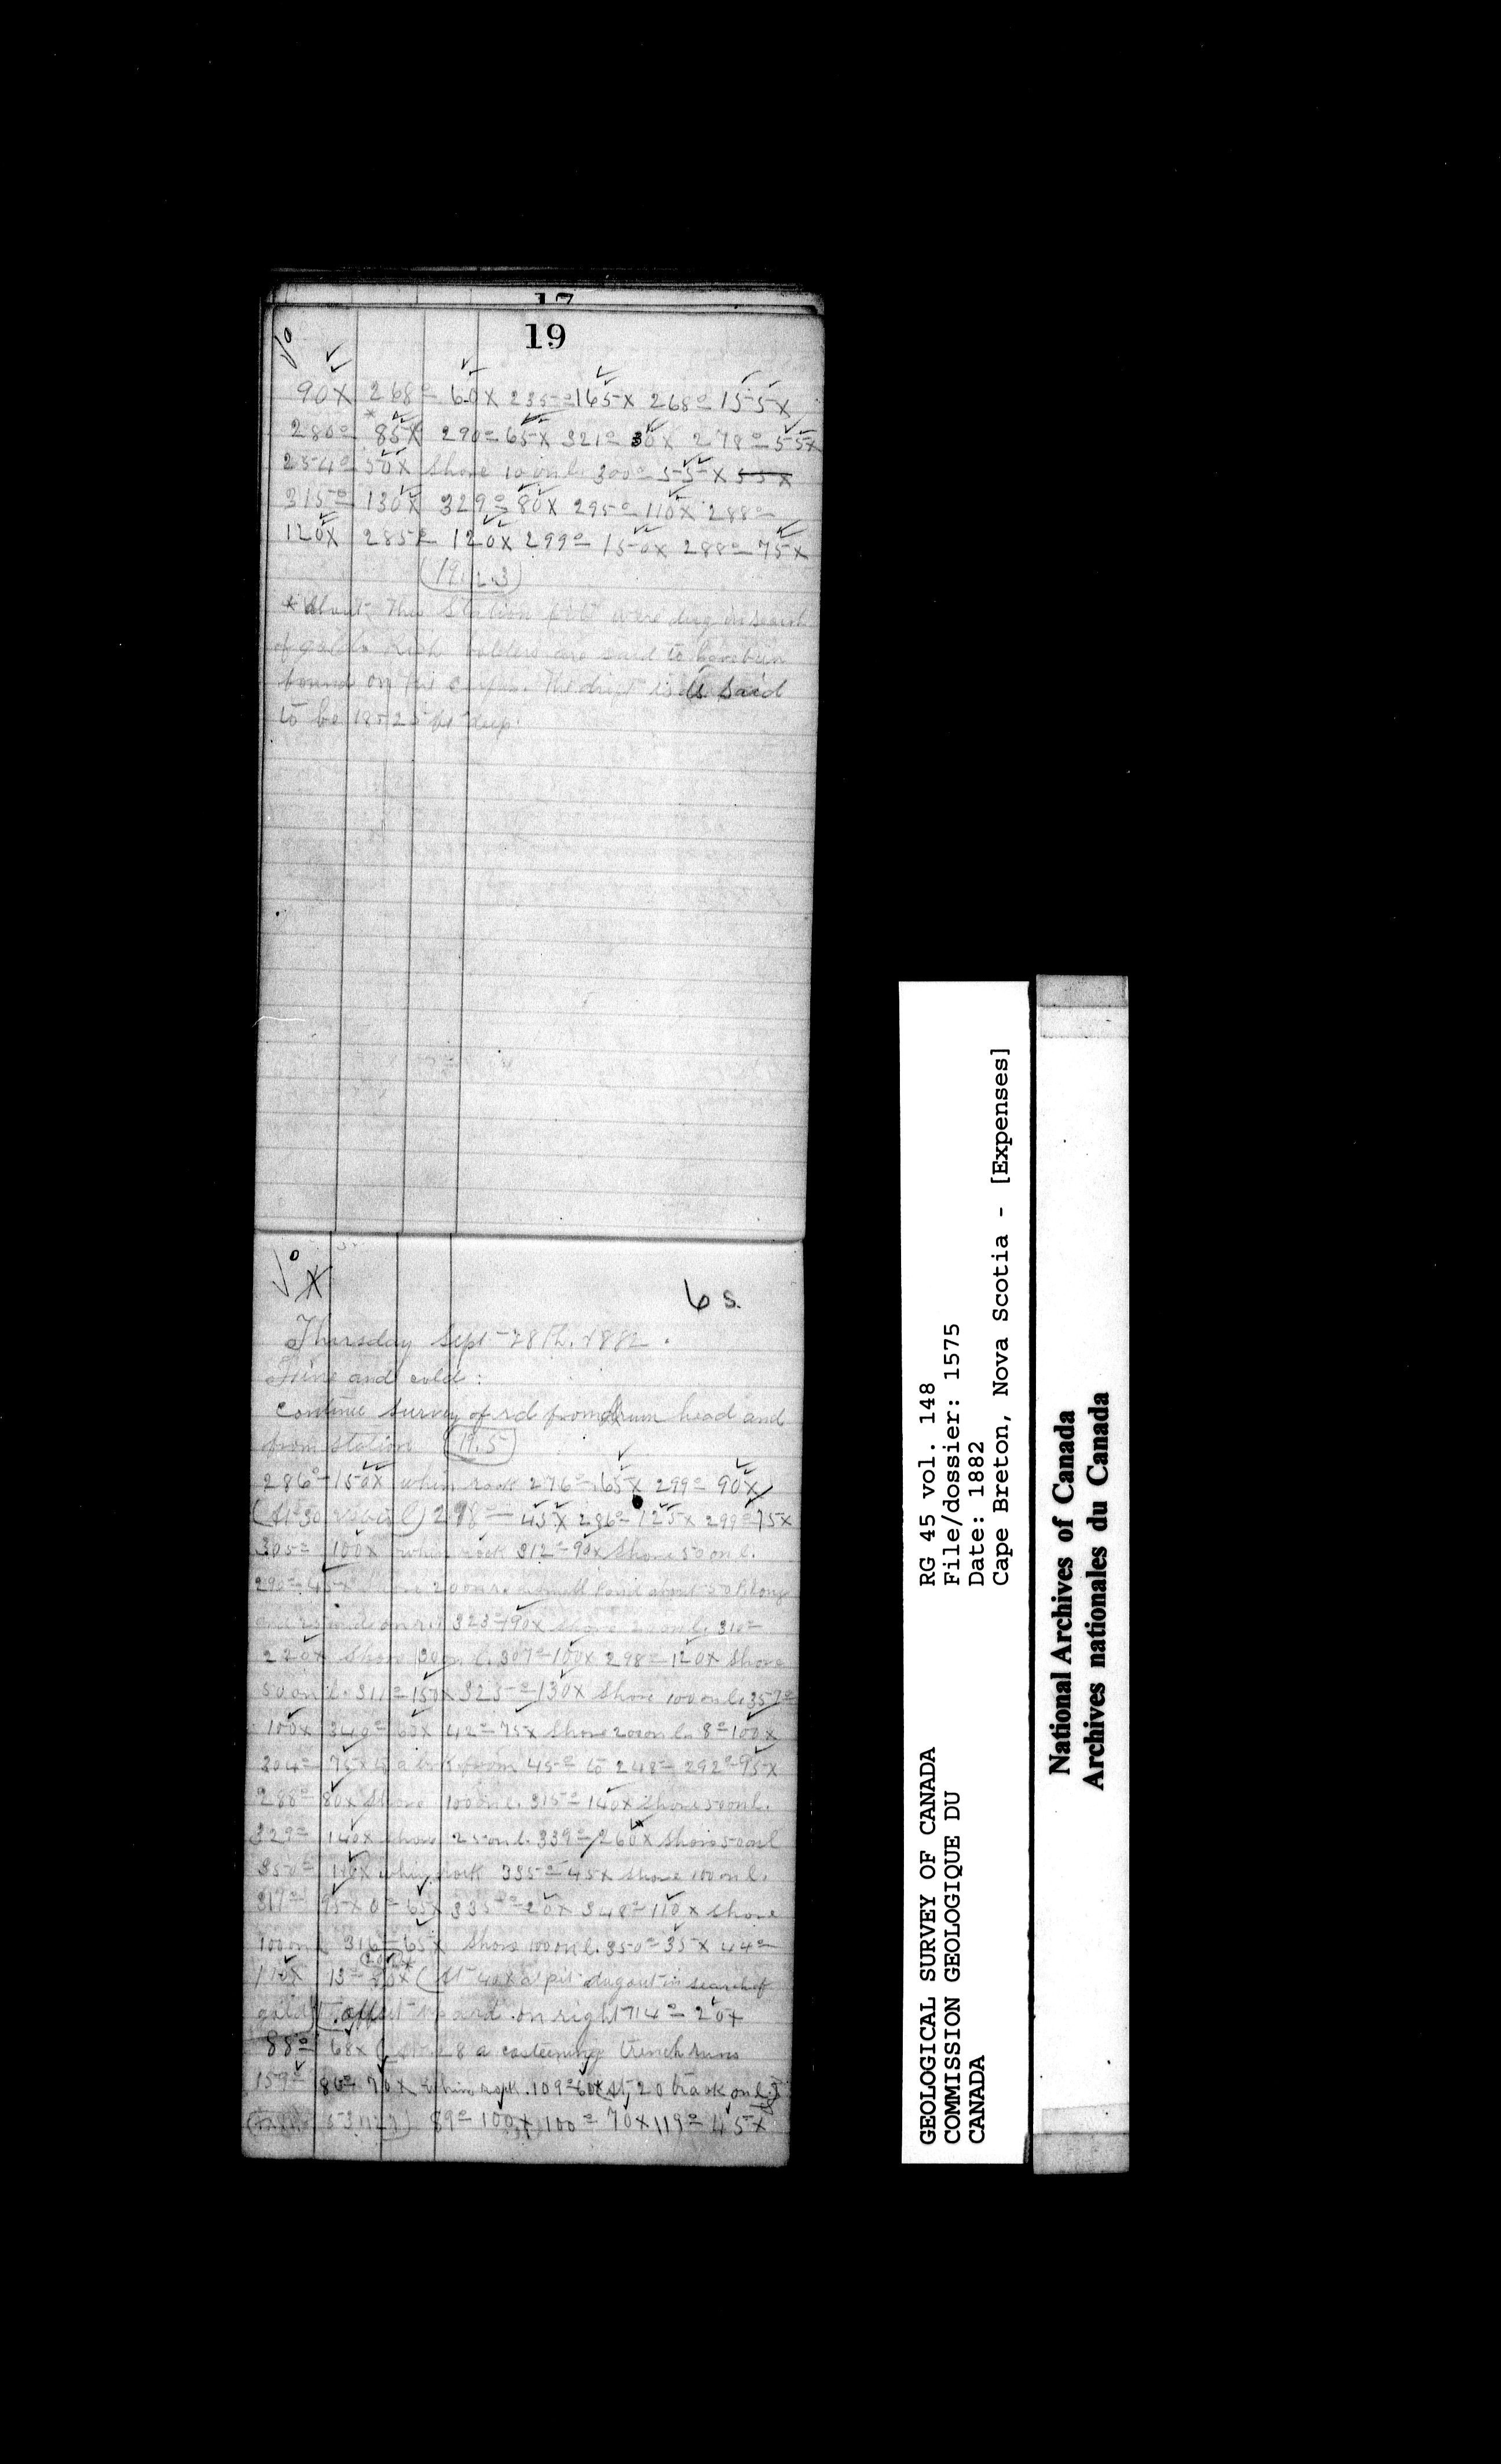 17
19
90x 268° 60x 235° 165x 268° 155x
280° *85x 290° 65x 321° 30x 278° 55x
254° 50x Shore 10 on l. 300° 55x 55x
315° 130x 329° 80x 295° 110x 288°
120x 285° 120x 299° 150x 288° 75x
(19.2.3)
* About this Station pits were dug in search
of gold. Rich bolders are said to have been
found on the The drift is is said
to be 18-25 ft deep.
6 s.
Thursday Sept 28th. 1882.
Fine and cold:
Continue survey of rd from Drum head and
from station (19.5)
286° 150x whin rock 276° 65x 299° 90x
(At 30 l) 298° 45x 286° 125x 299° 75x
305° 100x whin rock 312° 90x Shore 50 on l.
290° 45x 200 on r. a small pond about 50 long
and on r. 323° 90x Shore on l. 310°
220x Shore 30 on l. 307° 100x 298° 120x Shore
50 on l. 311° 150x 323° 130x Shore 100 on l. 357°
100x 340° 60x 42° 75x Shore 200 on l. 8° 100x
304° 75x from 45° to 248° 292° 95x
288° 80x Shore 100 on l. 315° 140x Shore 50 on l.
329° 140x Shore 25 on l. 339° 260x Shore 50 on l
350° 110x whin rock 335° 45x Shore 100 on l.
317° 95x 0° 65x 335° 20x 348° 110x Shore
100 on l. 316° 65x Shore 100 on l. 350° 35x 44°
110x 13° 80x (At 40x a pit dug out in search of
gold) on right 714° 20x
88° 68x ( 8 a costeening trench runs
159° 80° 70x whin rock. 109° 60x At 20 track on l.
89° 100x 100° 70x 119° 45x
GEOLOGICAL SURVEY OF CANADA
COMMISSION GEOLOGIQUE DU
CANADA
RG 45 vol. 148
File/dossier: 1575
Date: 1882
Cape Breton, Nova Scotia - [Expenses]
National Archives of Canada
Archives nationales du Canada